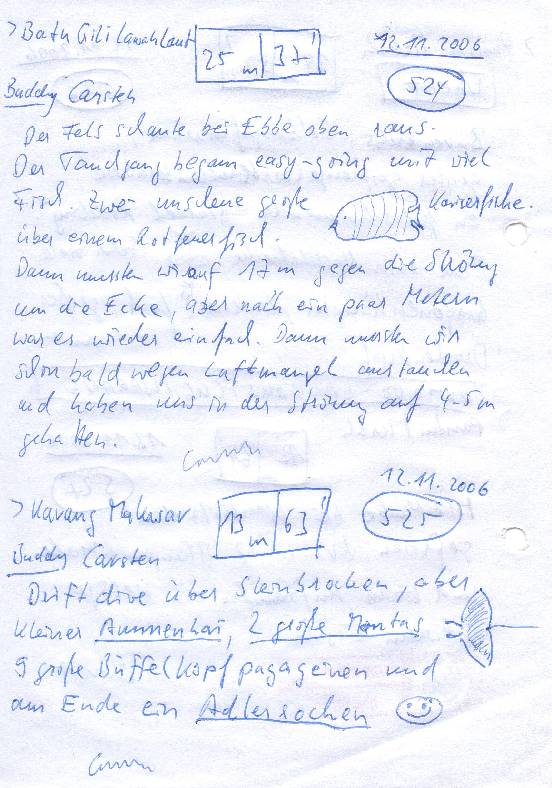 > Batu Gili Lawah Laut 25 m 37' 12.11.2006
524
Buddy Carsten
Der Fels schaute bei Ebbe oben raus.
Der Tauchgang begann easy-going mit viel
Fisch. Zwei große Kaiserfische.
über einem Rotfeuerfisch.
Dann mussten wir auf 17 m gegen die Strömung
um die Ecke, aber nach ein paar Metern
war es wieder einfach. Dann mussten wir
schon bald wegen Luftmangel austauchen
und haben uns in der Strömung auf 4-5 m
gehalten.
12.11.2006
> Karang Makassar 13 m 63' 525
Buddy Carsten
Driftdive über Steinbrocken, aber
kleiner Ammenhai, 2 große Mantas
9 große Büffelkopfpapageien und
am Ende ein Adlerrochen